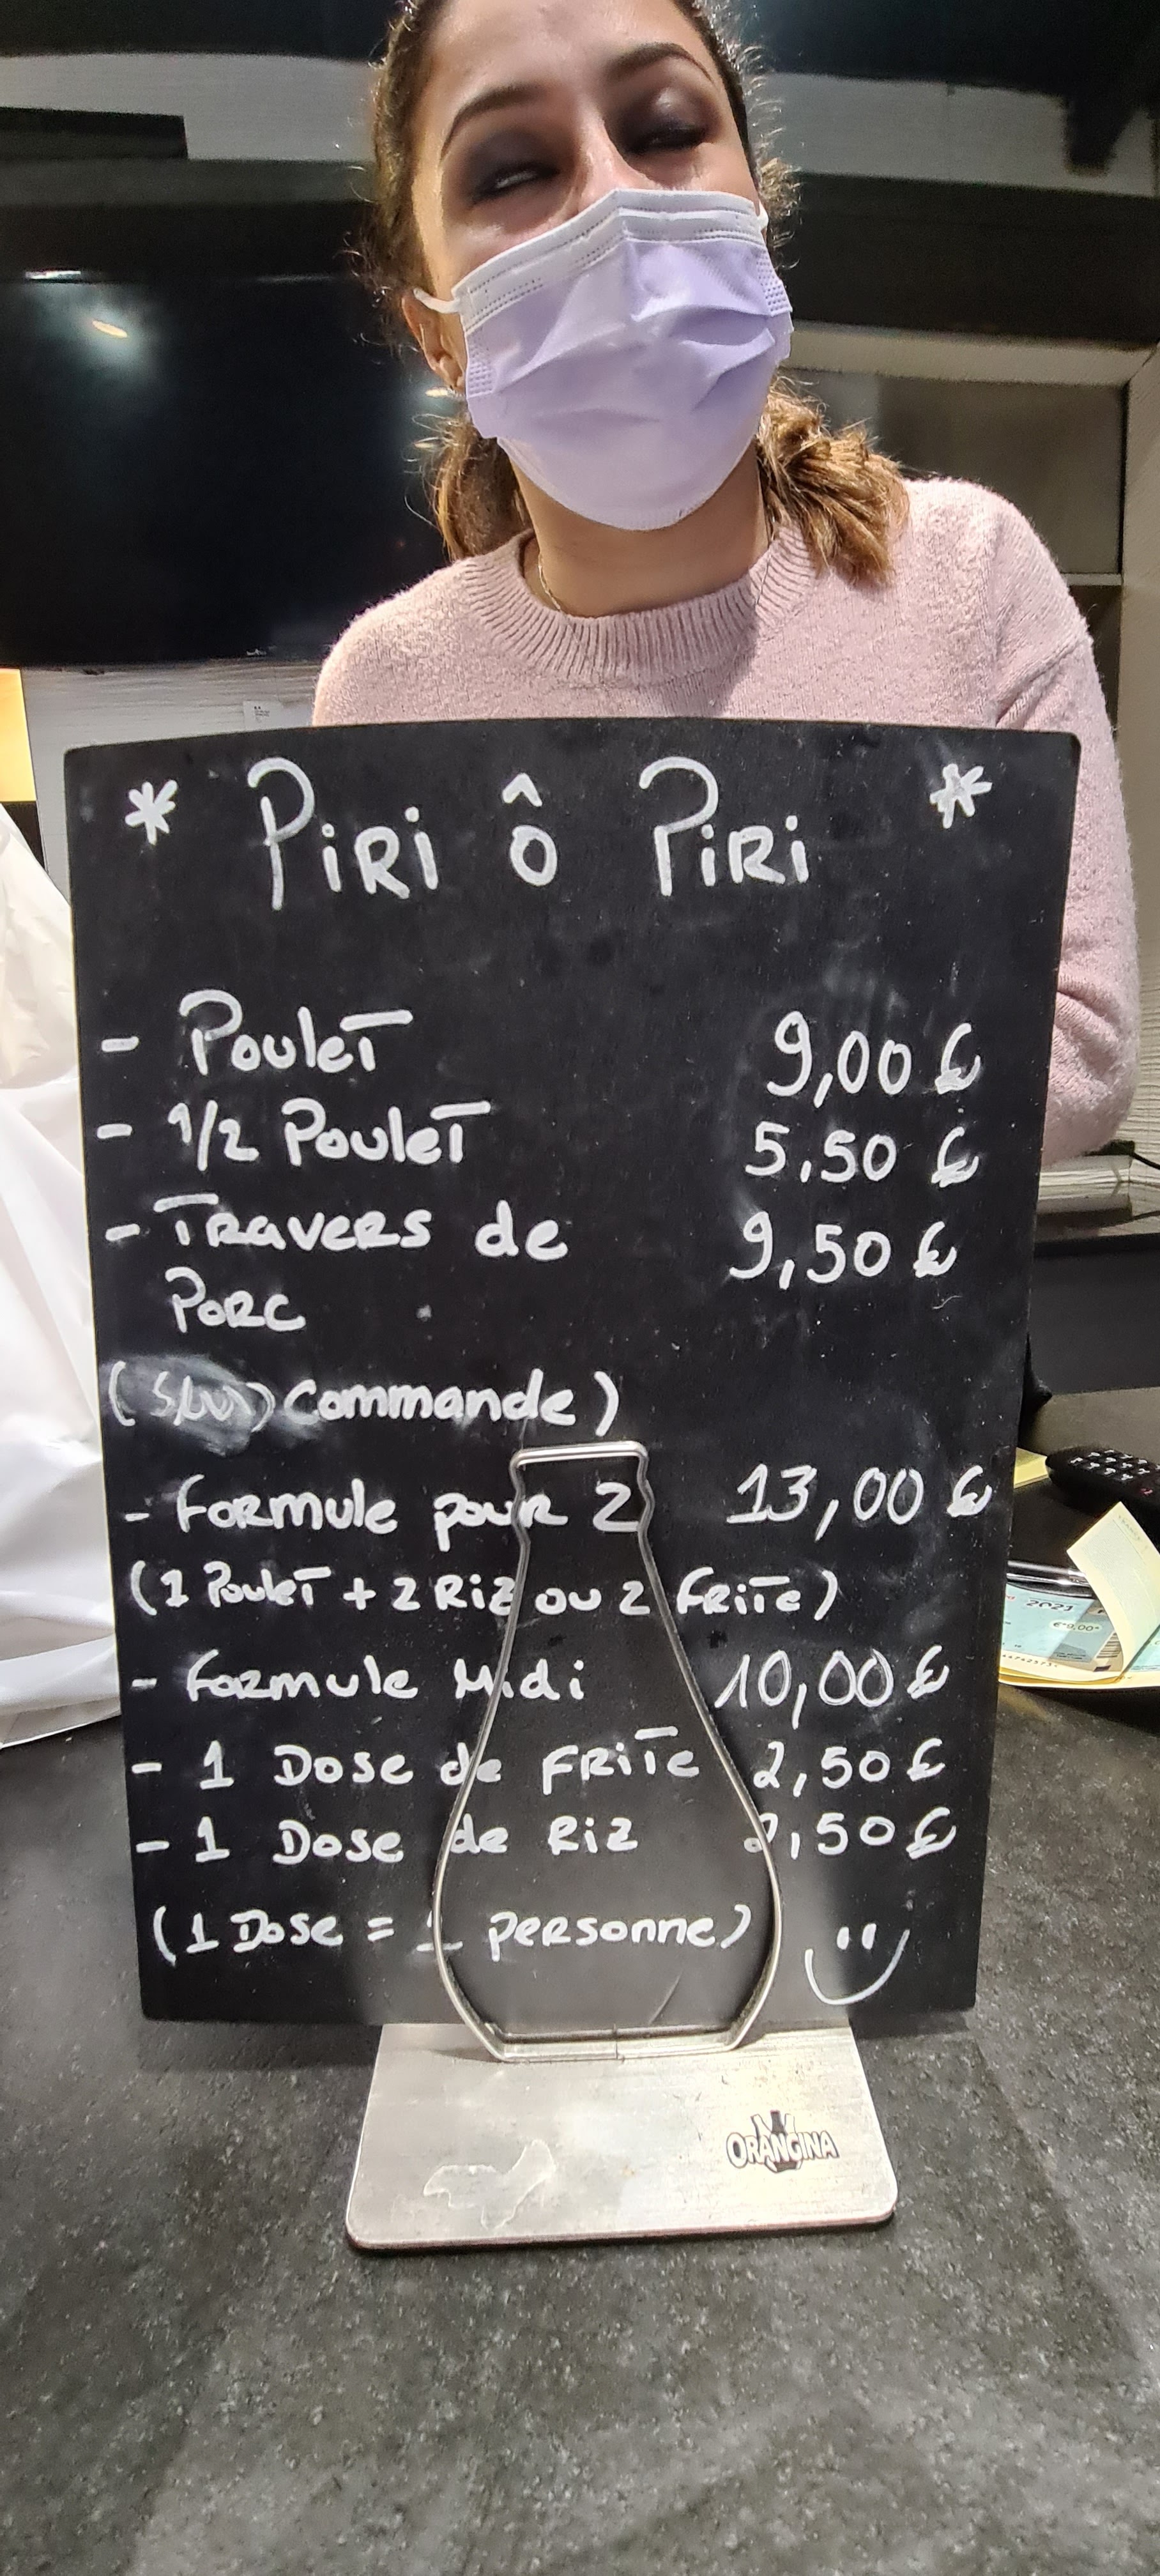 * Piri ô Piri *
- Poulet 9,00 €
- 1/2 Poulet 5,50 €
- Travers de 9,50 €
Porc
( Commande)
- Formule pour 2 13,00 €
(1 Poulet + 2 Riz ou 2 Frite)
- Formule Midi 10,00 €
- 1 Dose de Frite 2,50 €
- 1 Dose de Riz 2,50 €
(1 Dose = 1 personne)
2021
ORANGINA